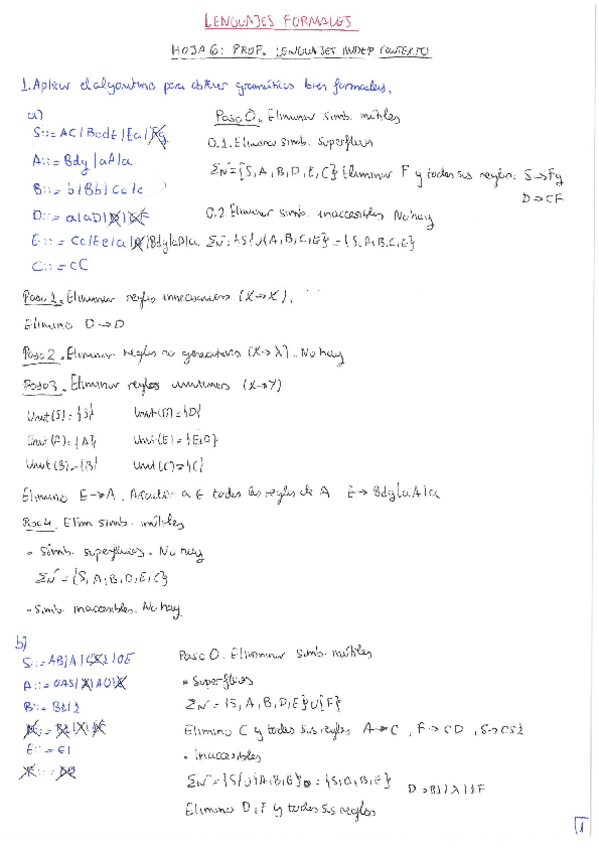 LENGUAJES FORMALES
HOJA 6: PROF. LENGUAJES INDEP CONTEXTO
1. Aplicar el algoritmo para obtener gramáticas bien formadas.
a)
S::= AC|BcdE|Ea|Fg
A::= Bdy|aA|a
B::= b|Bb|Cc|c
D::= a|aD|D|CF
E::= Cc|Ee|a|A|Bdy|aA|a
C::= cC
Paso 0. Eliminar simb. inútiles
0.1. Eliminar simb. superfluos
ΣN={S,A,B,D,E,C} Eliminar F y todas sus reglas: S→Fg
D→CF
0.2 Eliminar simb. inaccesibles No hay
ΣN={S}∪{A,B,C,E} = {S,A,B,C,E}
Paso 1. Eliminar reglas innecesarias (X→X).
Elimino D→D
Paso 2. Eliminar reglas no generativas (X→λ). No hay
Paso 3. Eliminar reglas unitarias (X→Y)
Unit(S)={S} Unit(D)={D}
Unit(A)={A} Unit(E)={E,A}
Unit(B)={B} Unit(C)={C}
Elimino E→A. Añadir a E todas las reglas de A E→Bdy|aA|a
Paso 4. Elim simb. inútiles
• Simb. superfluos. No hay
ΣN={S,A,B,D,E,C}
• Simb. inaccesibles. No hay.
b)
S::= AB|A|CS1|0E
A::= 0AS|
B::= B1|1
E::= E1
Paso 0. Eliminar simb. inútiles
• Superfluos
ΣN={S,A,B,D,E}∪{F}
Elimino C y todas sus reglas A→C, F→CD, S→CS1
• inaccesibles
ΣN={S}∪{A,B,E} = {S,A,B,E}
Elimino D,F y todas sus reglas
1